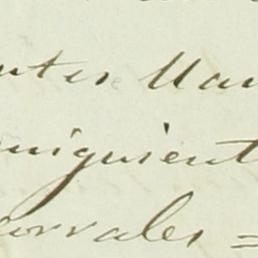 ntes Man
miquient
orrales =